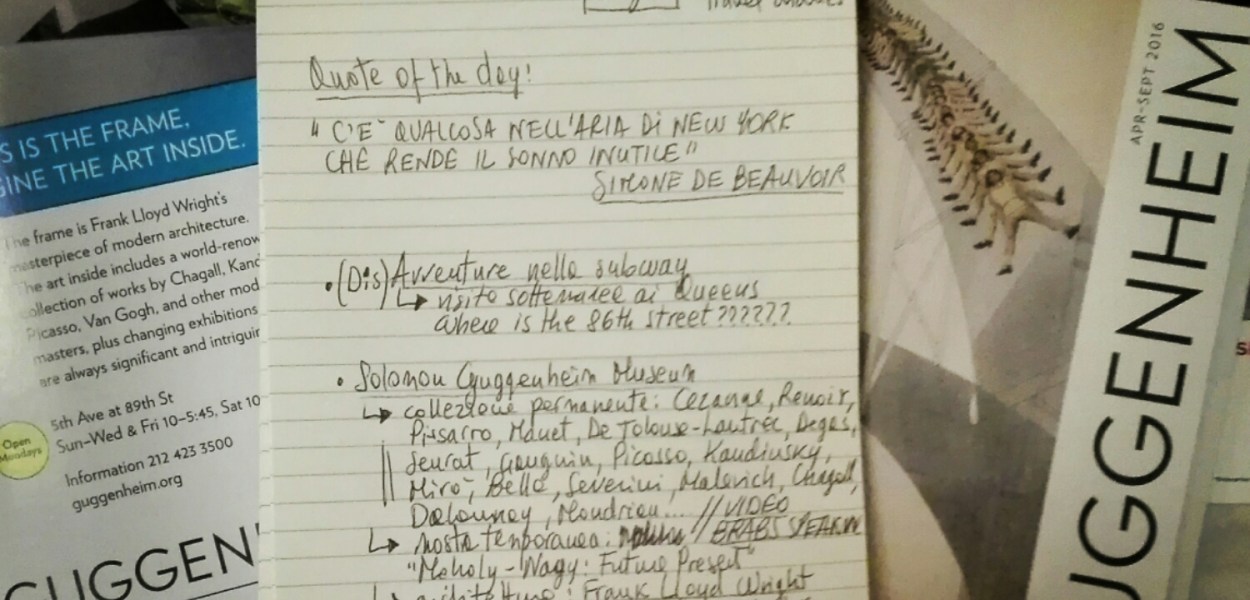 S IS THE FRAME.
GINE THE ART INSIDE.
The frame is Frank Lloyd Wright's
masterpiece of modern architecture.
The art inside includes a world-renow
collection of works by Chagall, Kand
Picasso, Van Gogh, and other mod
masters, plus changing exhibitions
are always significant and intriguin
Open
Mondays
5th Ave at 89th St
Sun–Wed & Fri 10–5:45, Sat 10
Information 212 423 3500
guggenheim.org
GUGGEN
Quote of the day!
"C'E' QUALCOSA NELL'ARIA Di NEW YORK
CHE RENDE IL SONNO INUTILE"
SIMONE DE BEAUVOIR
•(Dis)Avventure nella subway
↳ ai Queens
where is the 86th street??????
• Solomon Guggenheim Museum
↳ collezione permanente: Cezanne, Renoir,
Pissarro, Manet, De Tolouse-Lautrec, Degas,
Seurat, Gauguin, Picasso, Kandinsky,
Miro', Balla, Severini, Malevich, Chagall,
Delaunay, Mondrian... // VIDEO
↳ mostra temporanea: // BRABS SPEAKIN
"Moholy-Nagy: Future Present"
architettura: Frank Lloyd Wright
APR–SEPT 2016
UGGENHEIM